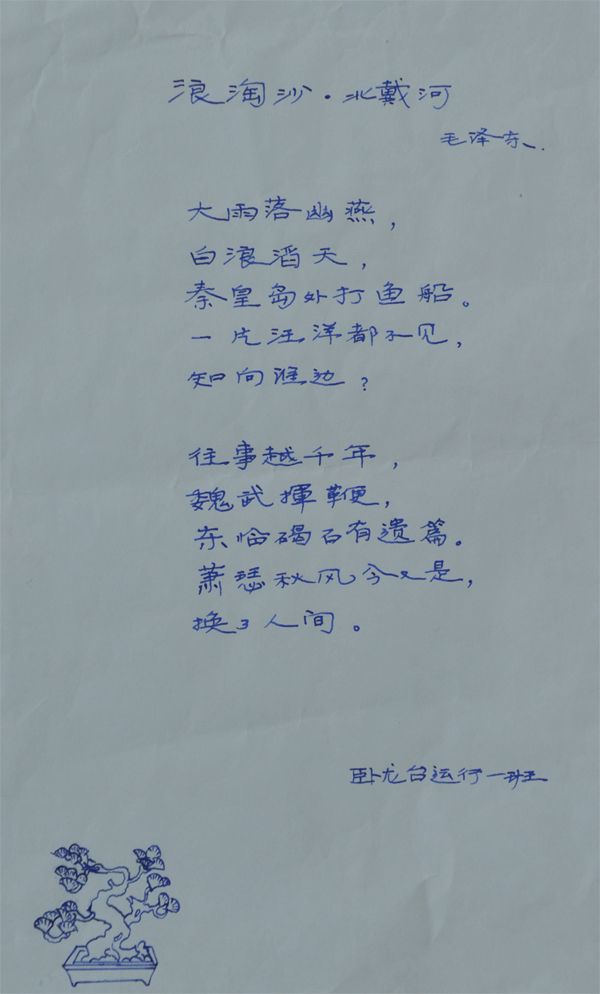 浪淘沙·北戴河
毛泽东
大雨落幽燕，
白浪滔天，
秦皇岛外打鱼船。
一片汪洋都不见，
知向谁边？
往事越千年，
魏武揮鞭，
东临碣石有遗篇。
萧瑟秋风今又是，
换了人间。
卧龙台运行一班